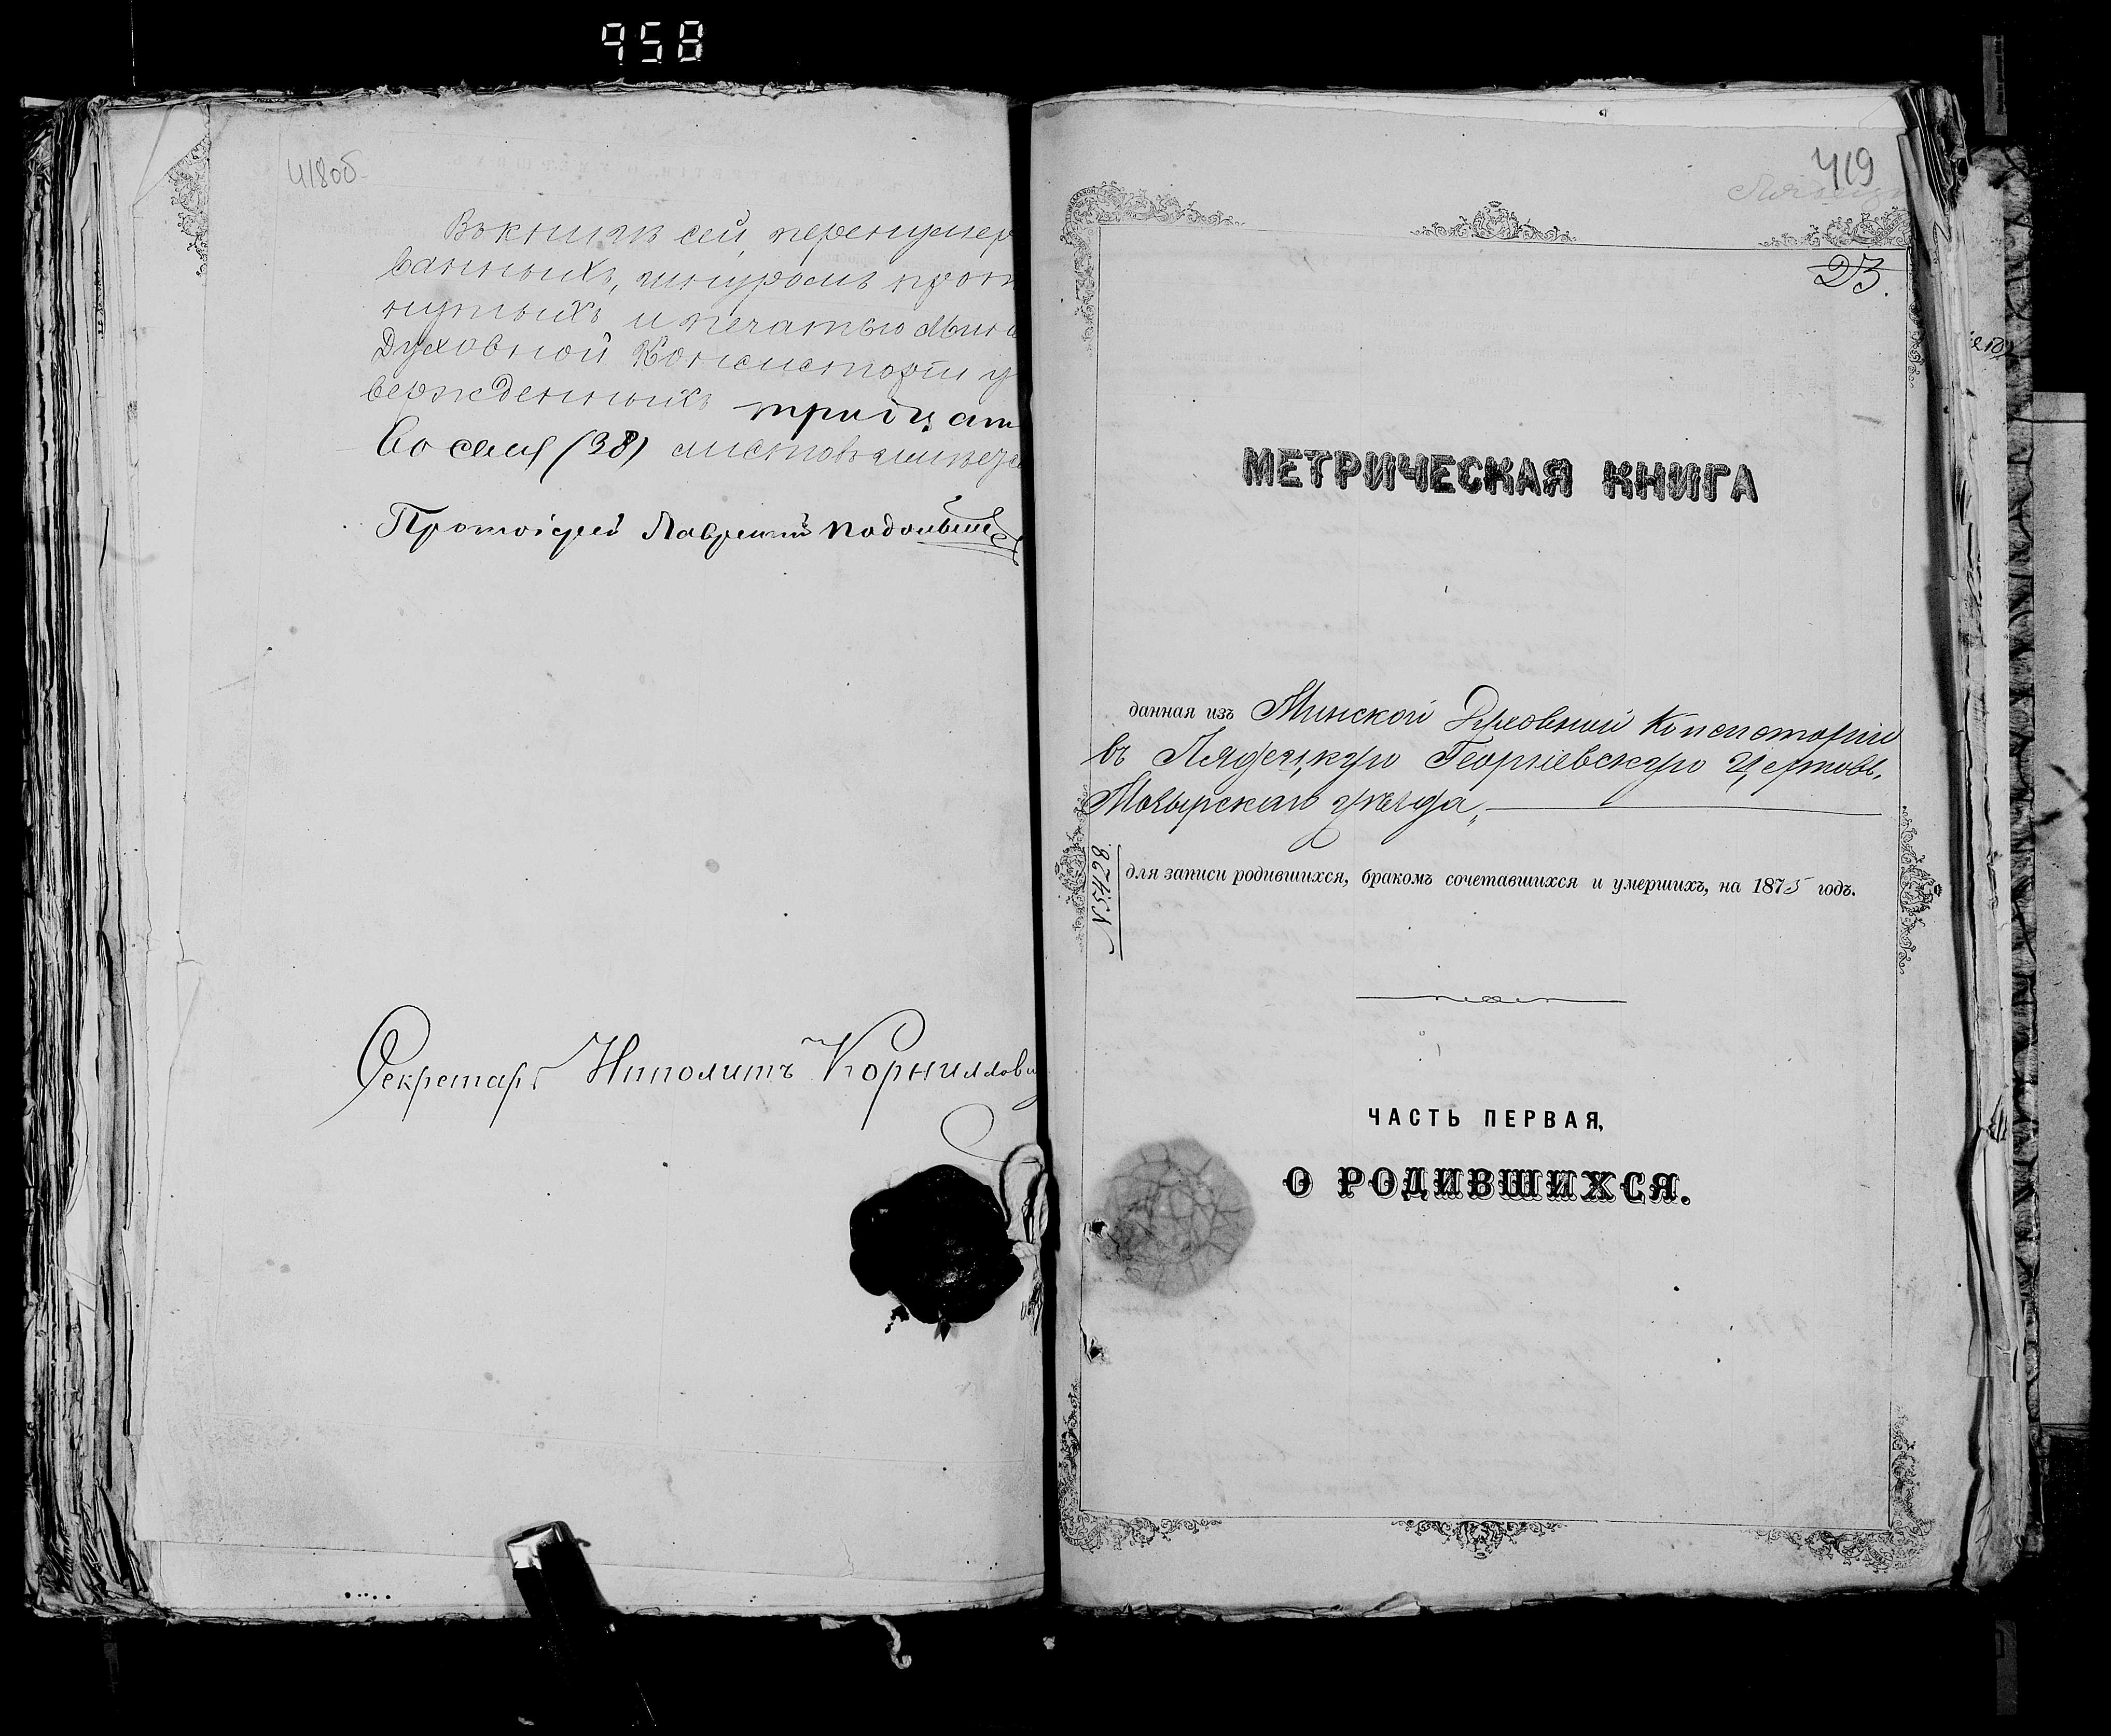 958
418об
Въ книгѣ сей, перенумер
ванныхъ, шнуромъ прот
нутыхъ и печатью Минс
Духовной Консисторіи у
вержденныхъ тридцат
восемь (38) листовъ
Протоіерей Лаврентій
Секретарь Ипполитъ Корнилови
419
23.
МЕТРИЧЕСКАЯ КНИГА
данная изъ Минской Духовной Консисторіи
въ Лядецкую Георгіевскую Церковь,
Мозырскаго уѣзда,
для записи родившихся, бракомъ сочетавшихся и умершихъ, на 1875 годъ.
№5428
ЧАСТЬ ПЕРВАЯ,
О РОДИВШИХСЯ.